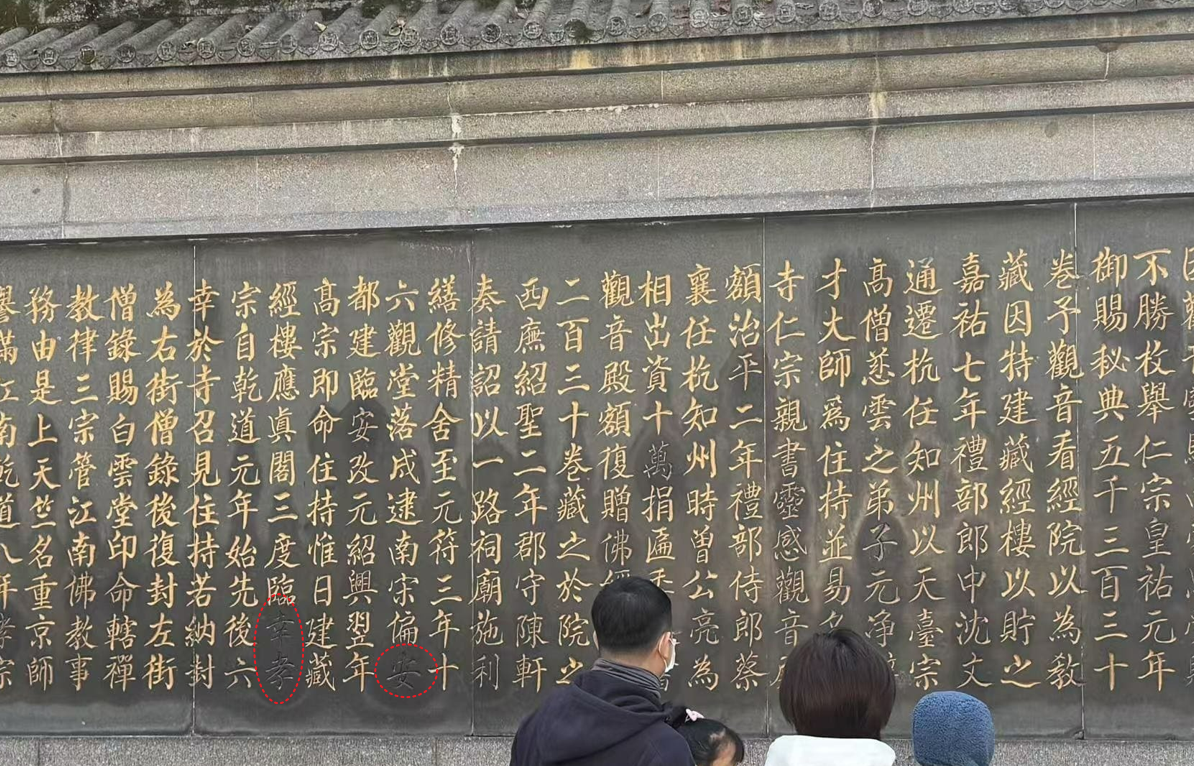 不勝枚舉仁宗皇祐元年
御賜秘典五千三百三十
卷予觀音看經院以為教
藏因特建藏經樓以貯之
嘉祐七年禮部郎中沈文
通遷杭任知州以天臺宗
髙僧慈雲之弟子元净
才大師爲住持並易名
寺仁宗親書靈感觀音
額治平二年禮部侍郎蔡
襄任杭知州時曾公亮為
相出資十萬捐匾
觀音殿額復贈佛經
二百三十卷藏之於院之
西廡紹聖二年郡守陳軒
奏請詔以一路祠廟施利
繕修精舍至元符三年十
六觀堂落成逮南宗偏安
都建臨安改元紹興翌年
髙宗即命住持惟日建藏
經樓應真閣三度臨幸孝
宗自乾道元年始先後六
幸於寺召見住持若納封
為右街僧錄後復封左街
僧錄賜白雲堂印命轄禪
教律三宗管江南佛教事
務由是上天竺名重京師
譽滿江南乾道八年孝宗